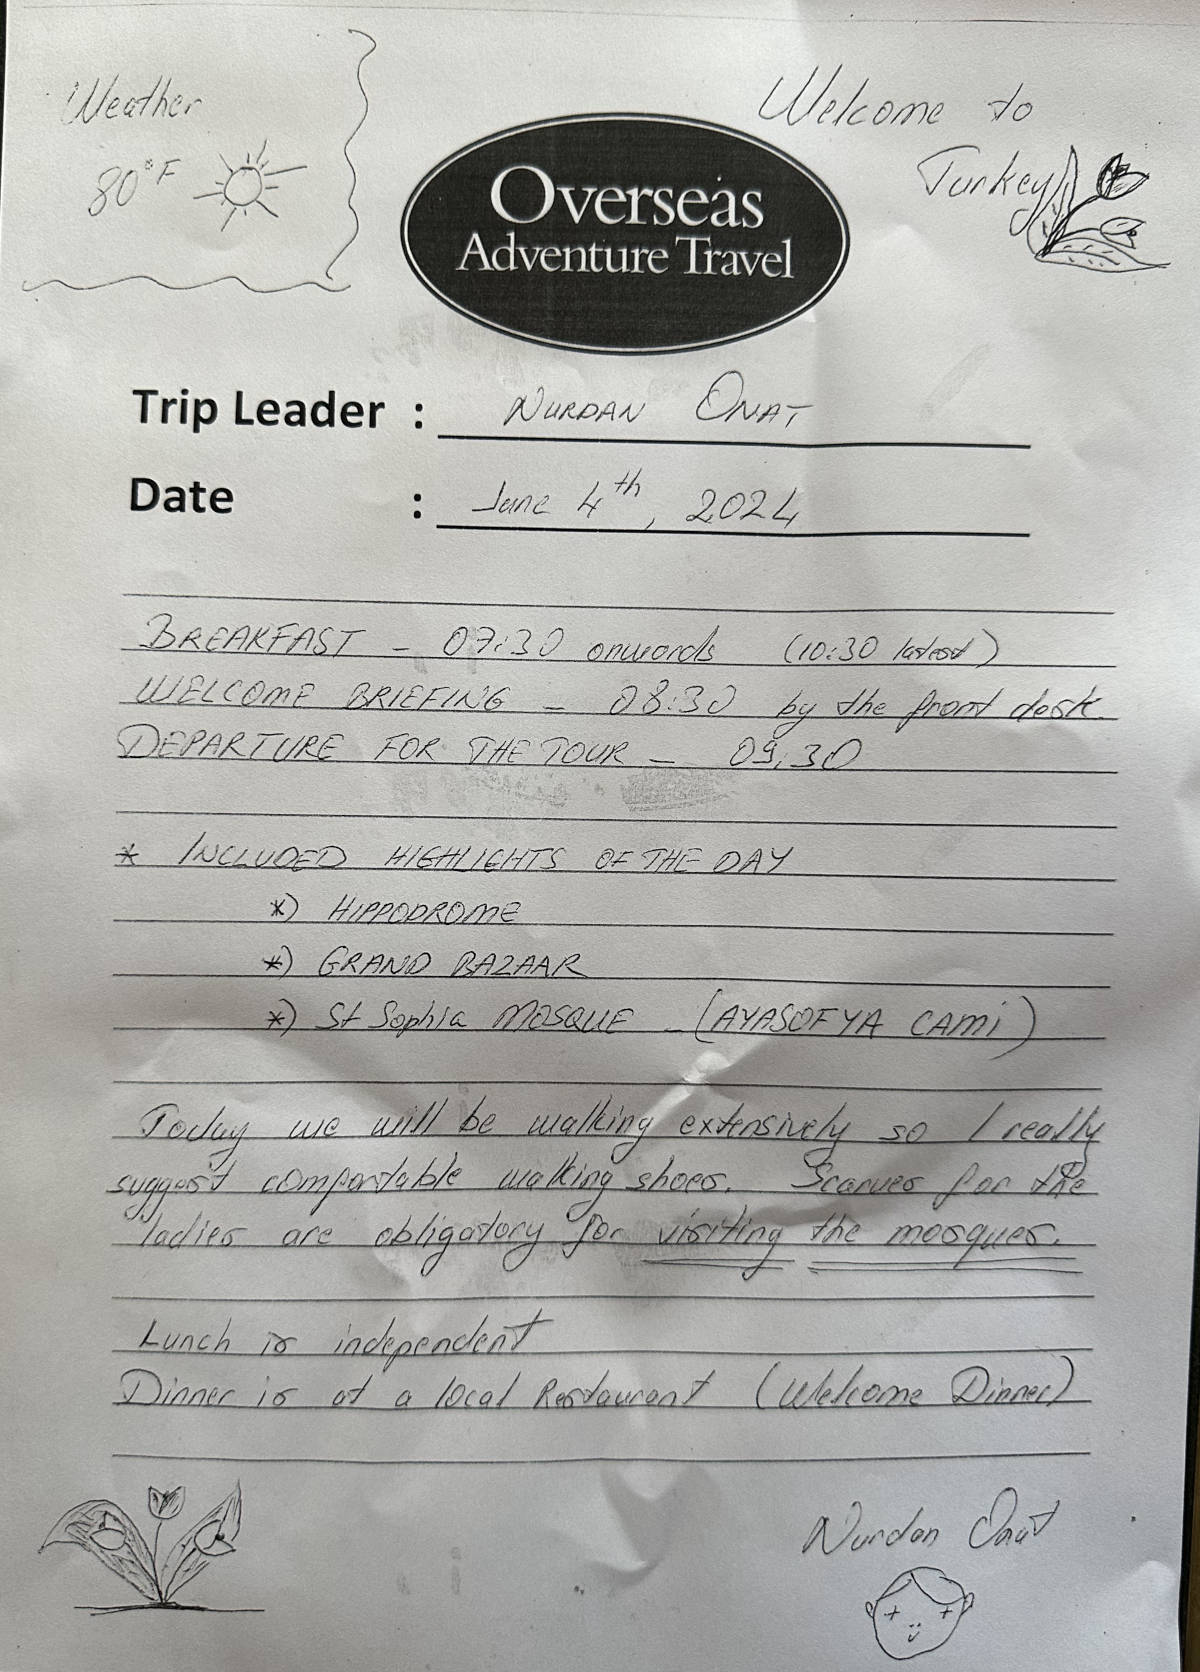 Weather
80°F
Welcome to
Turkey
Overseas
Adventure Travel
Trip Leader : NURDAN ONAT
Date : June 4th, 2024
BREAKFAST - 07:30 onwards (10:30 latest)
WELCOME BRIEFING - 08:30 by the front desk.
DEPARTURE FOR THE TOUR - 09:30
* INCLUDED HIGHLIGHTS OF THE DAY
*) HIPPODROME
*) GRAND BAZAAR
*) St Sophia MOSQUE - (AYASOFYA CAMİ)
Today we will be walking extensively so I really
suggest comfortable walking shoes. Scarves for the
ladies are obligatory for visiting the mosques.
Lunch is independent
Dinner is at a local Restaurant (Welcome Dinner)
Nurdan Onat